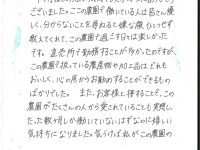 ございました。ここの農園で働いている人は皆さん優し
く、分からないことを尋ねると嫌な顔ひとつせず
教えてくれて、この農園で過ごす日々は楽しかった
です。直売所で勤務することが多かったのですが、
この農園で扱っている農産物や加工品はどれも
おいしく、心の底からお勧めすることができるもの
ばかりでした。また、お客様と接することで、この
農園がたくさんの人から愛されていることも実感し、
たった数ヶ月しか働いていないはずなのに嬉しい
気持ちになりました。気づけば私がこの農園の